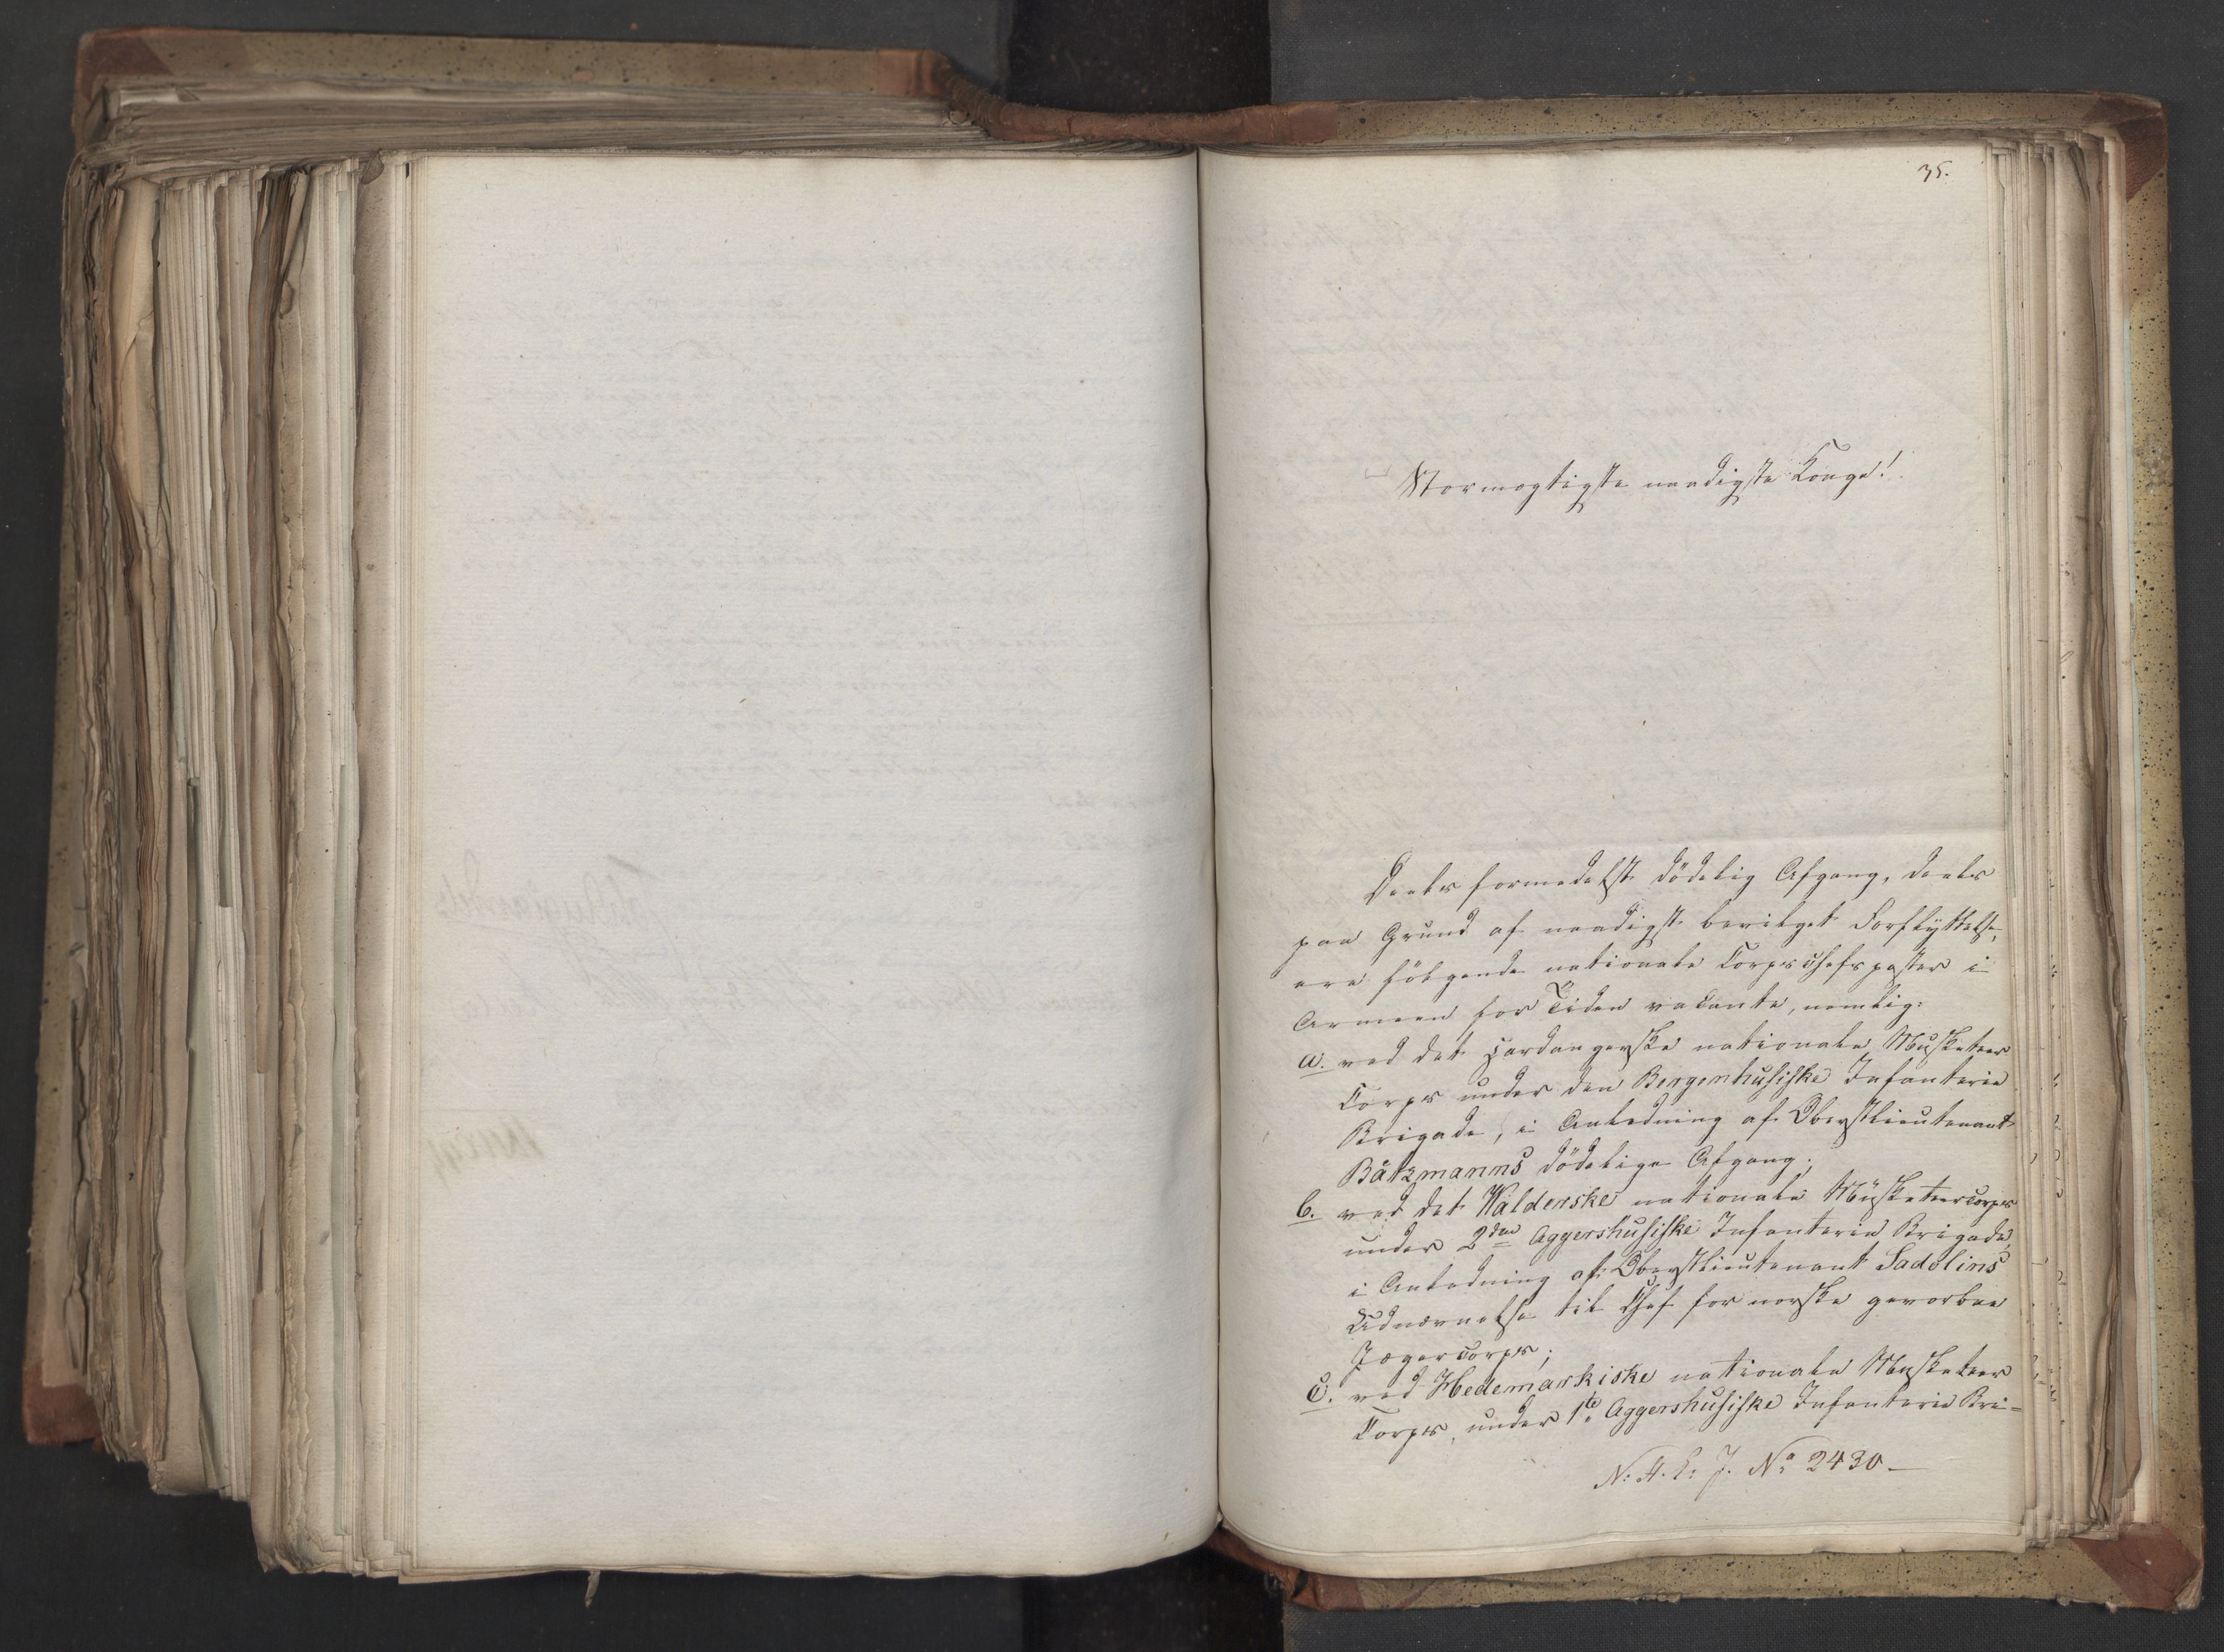 35.
Stormægtigste naadigste Konge!
Deels formedelst dödelig Afgang, deels
paa Grund af naadigst bevilget Forflyttelse,
ere fölgende nationale Corpschefsposter i
Armeen for Tiden vacante, nemlig:
a. ved det Hardangerske nationale Musketeer
Corps under den Bergenhusiske Infanterie
Brigade, i Anledning af Oberstlieutenant
Båtzmanns dödelige Afgang;
b. ved det Walderske nationale Musketeercorps
under 2den Aggershusiske Infanterie Brigade,
i Anledning af Oberstlieutenant Sadolins
Udnævnelse til Chef for norske gevorbne
Jægercorps;
c. ved Hedemarkiske nationale Musketeer
Corps, under 1te Aggershusiske Infanterie Bri=
N: A. C: J. No 2430 -